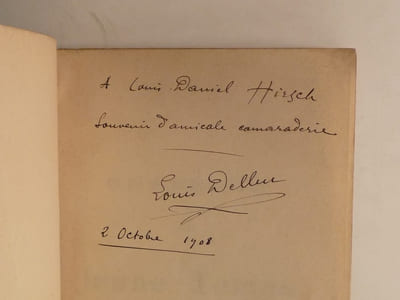 A Louis Daniel Hirsch
Souvenir d'amicale camaraderie
Louis Delluc
2 Octobre 1908